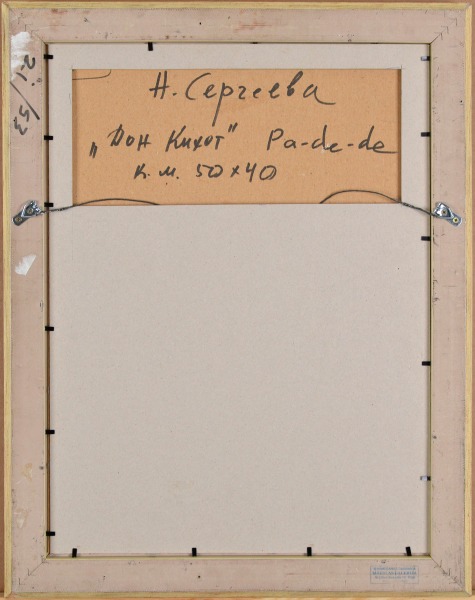 Н. Сергеева
„Дон Кихот" Pa-de-de
к. м. 50×40